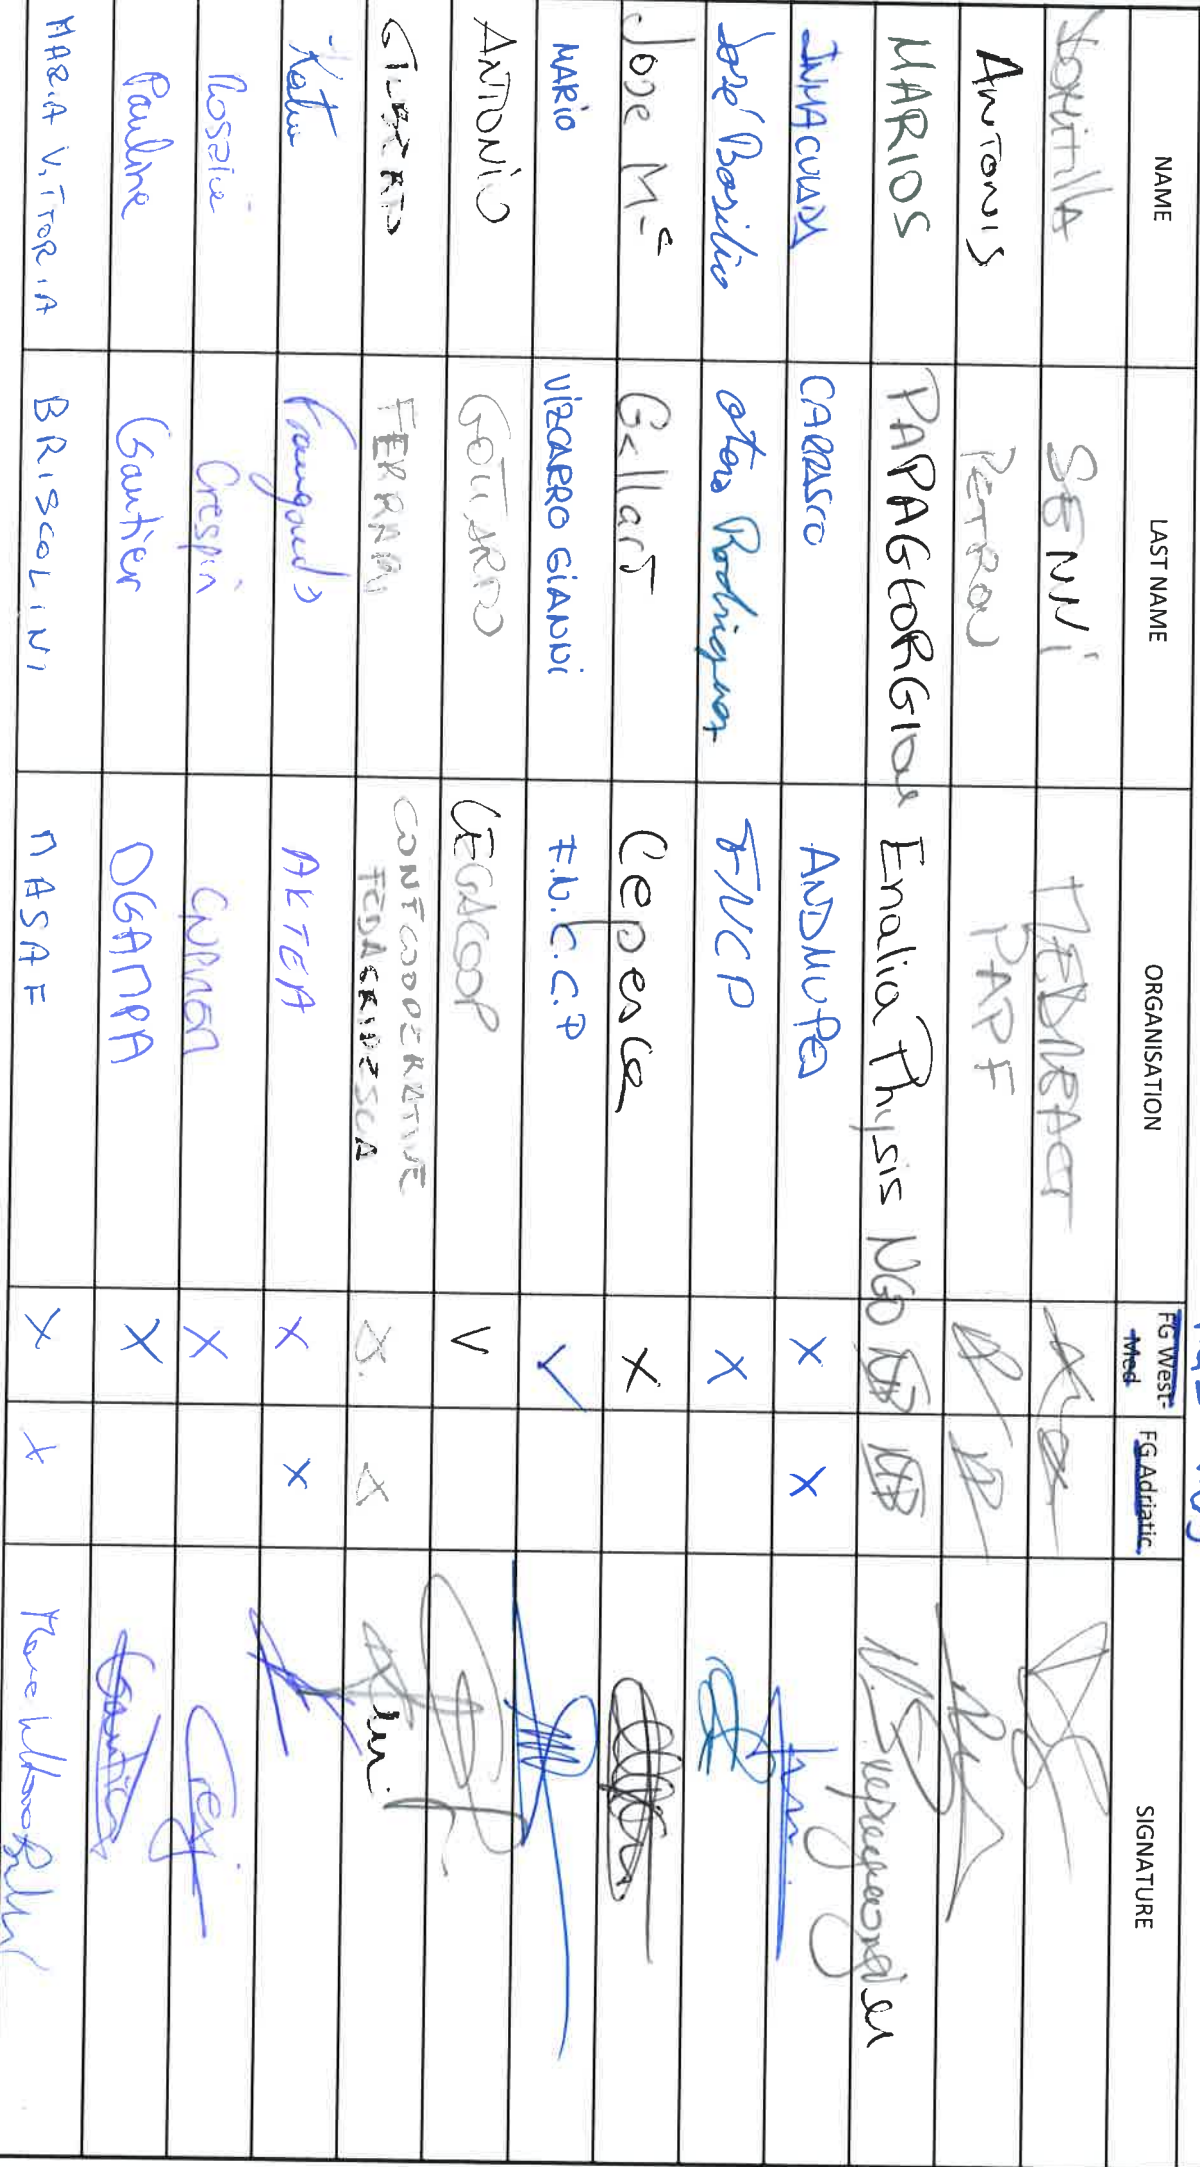 NAME LAST NAME ORGANISATION FG West-Med FG Adriatic SIGNATURE
DOMITILLA SENNI MEDREACT
ANTONIS PETROU PAPF
MARIOS PAPAGEORGIOU Enalia Physis NGO
INMACULADA CARRASCO ANDMUPES X X
José Basilio Otero Rodriguez FNCP X
Jose Mª Gallart Cepesca X
MARIO VIZCARRO GIANNI F.N.C.P V
ANTONIO GOTTARDO LEGACOOP V
GILBERTO FERRARI CONFCOOPERATIVE
FEDAGRIPESCA X X
Katia Frangoudes AKTEA X X
Rosalie Crespin CNPMEM X
Pauline Gautier OGAMPA X
MARIA VITTORIA BRISCOLINI MASAF X X